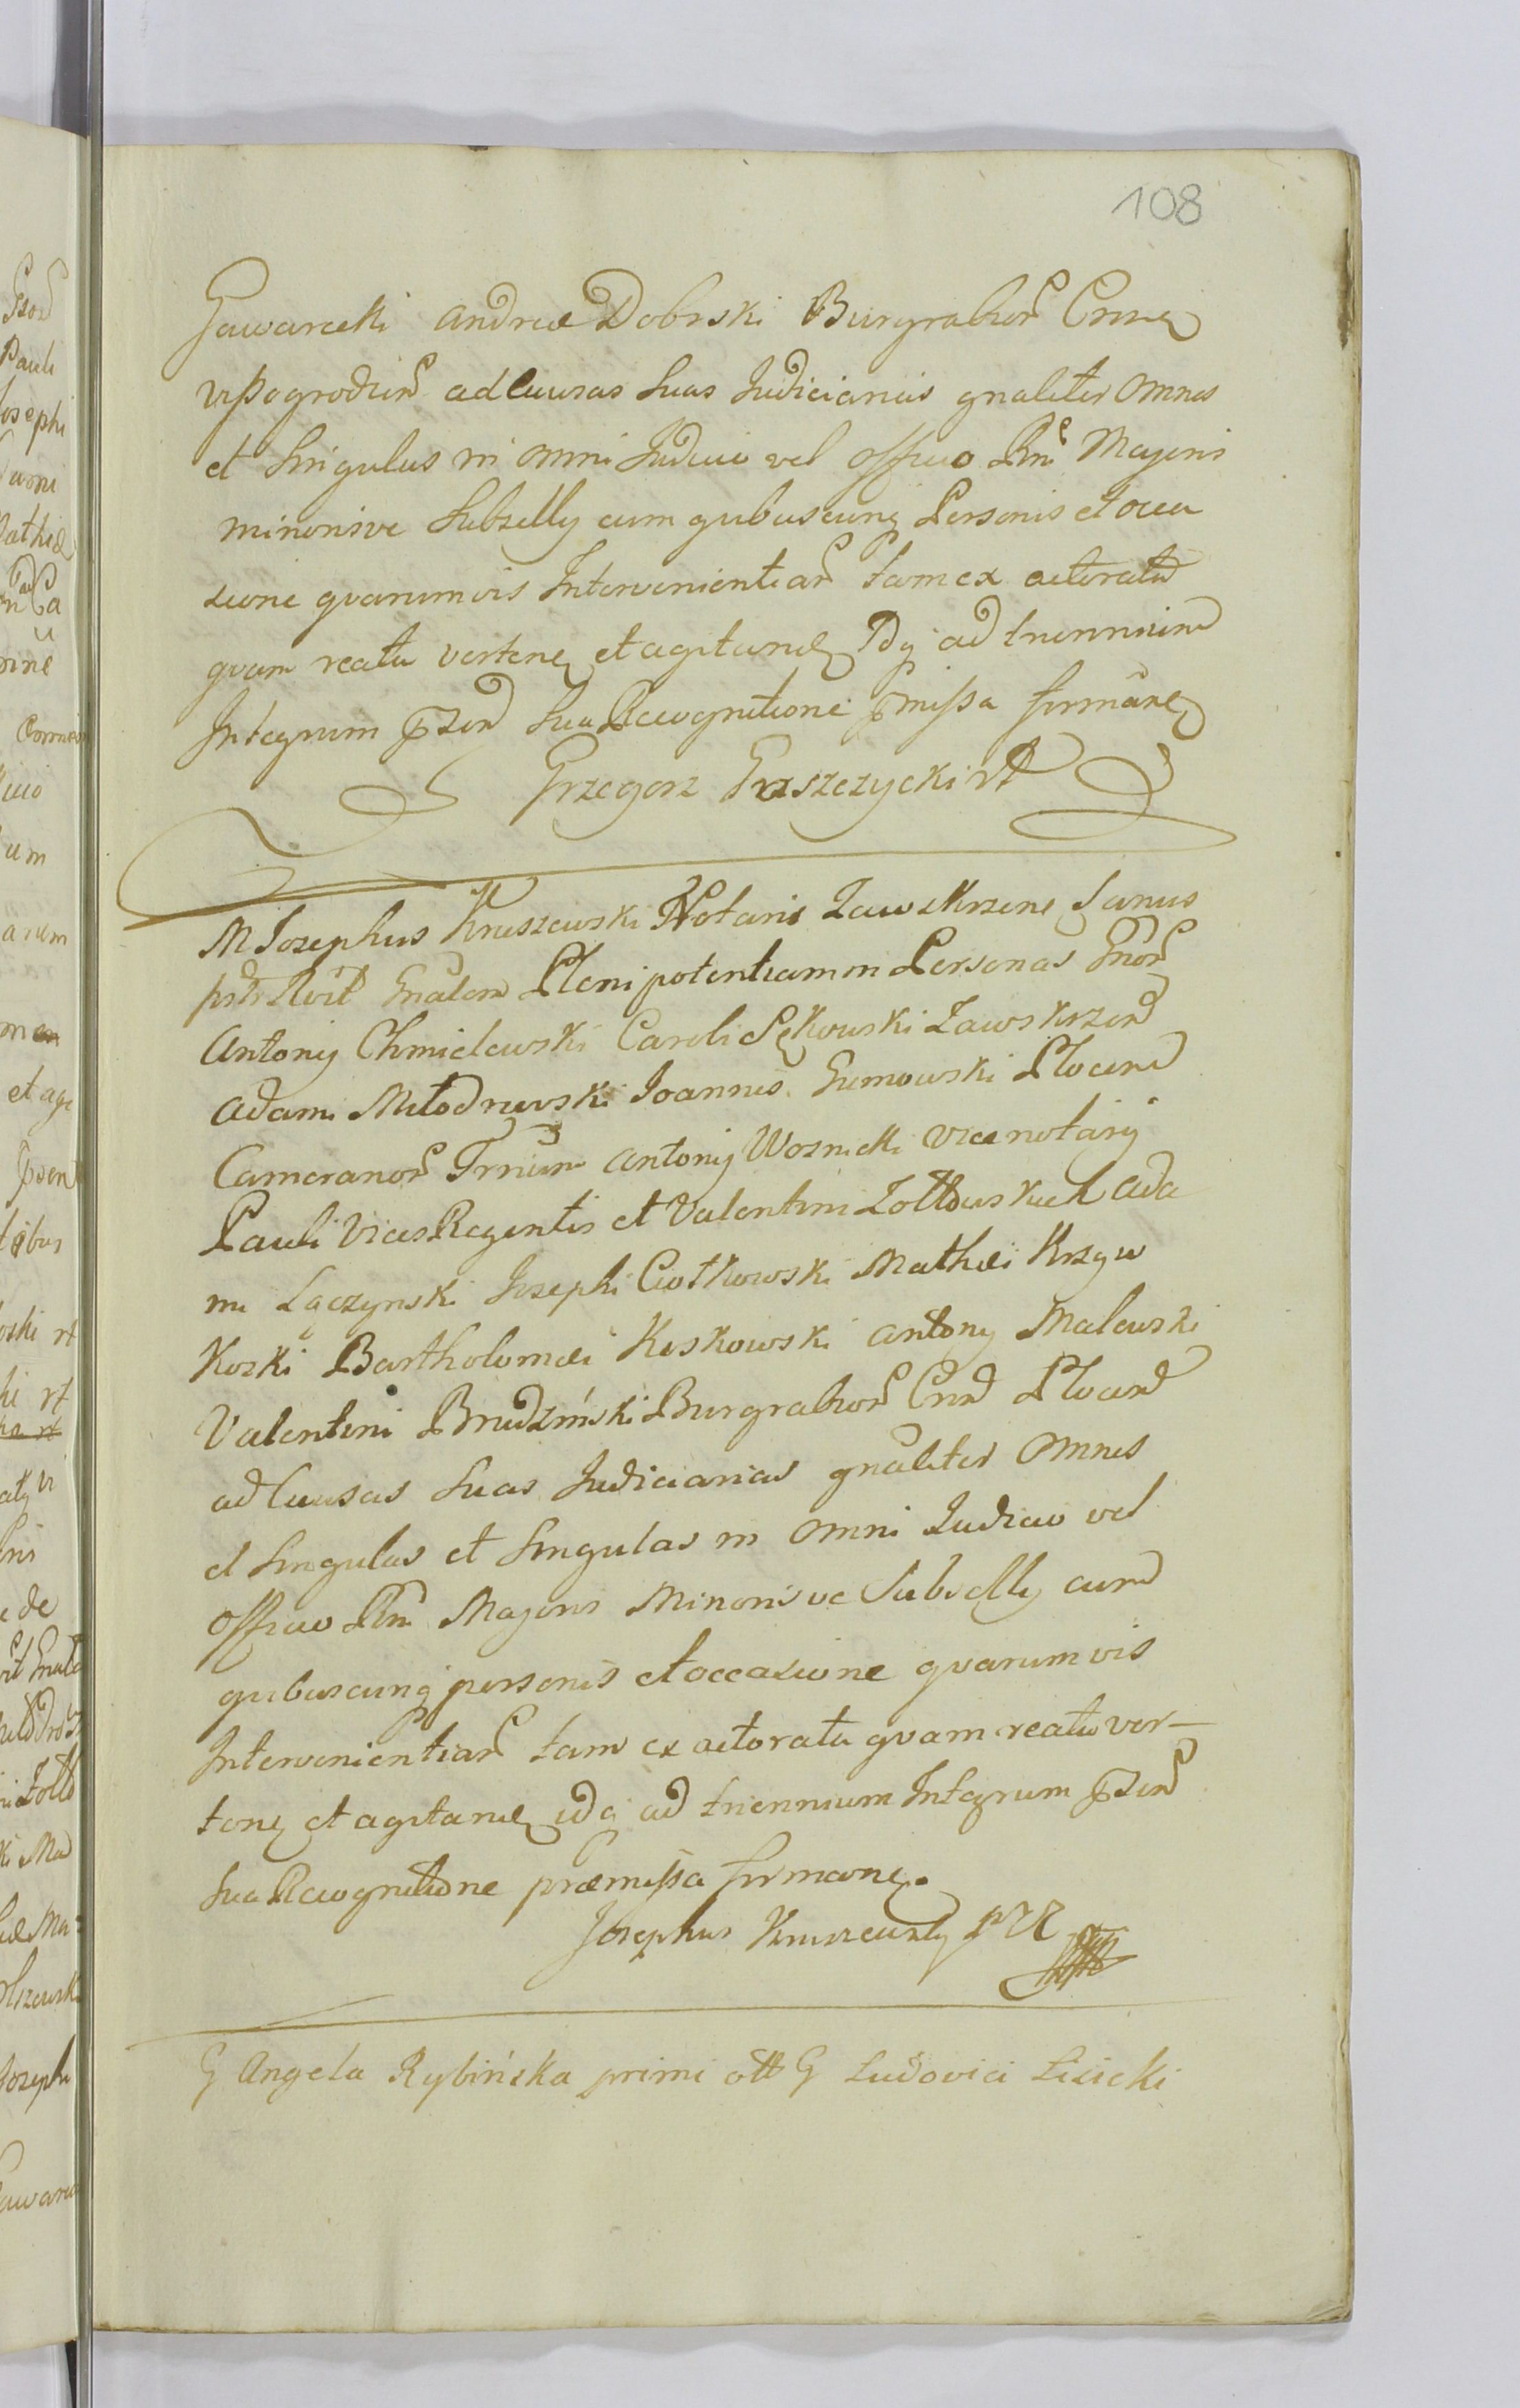 108
Gawarecki Andreæ Dobrski Burgrabior Crnę
Wyszogrodzien ad Causas suas Judiciarias gnaliter omnes
et singulas in omni Judicio vel officio Rni Majoris
minorisve Subselly cum quibuscunq Personis et occa
sione quarumvis Intervenientiar tam ex actoratu
quam reatu verten et agitan Idq ad triennium
Integrum pszen sua Recognitione pmissa firman
Grzegorz Grzszczycki
M Josephus Kruszewski Notaris Zawskrzene Sanus
Gnalem Plenipotentiam in Personas Gnor
Antonij Chmielewski Caroli Sękowski Zawskrzen
Adami Młodzniewski Joannis Gumowski Plocen
Camerarior Trrium Antonij Woznicki Vicenotarij
Pauli Vices Regentis et Valentini Zołtowskich Ada
mi Łączynski Josephi Ciołkowski Mathæi Krzyw
koski Bartholomæi Koskowski Antony Malewski
Valentini Brudziński Burgrabior Crn Plocen
ad Causas suas Judiciarias gnaliter omnes
et singulas et singulas in omni Judicio vel
officio Rni Majoris Minorisve Subselly cum
quibuscunq personis et occasione quarumvis
Intervenientiar tam ex actoratu quam reatu ver-
ten et agitan idq ad triennium Integrum pszen
sua Recognitione præmissa firman.
Josephus Kruszewski
G Angela Rybińska primi ott G Ludovici Lisicki